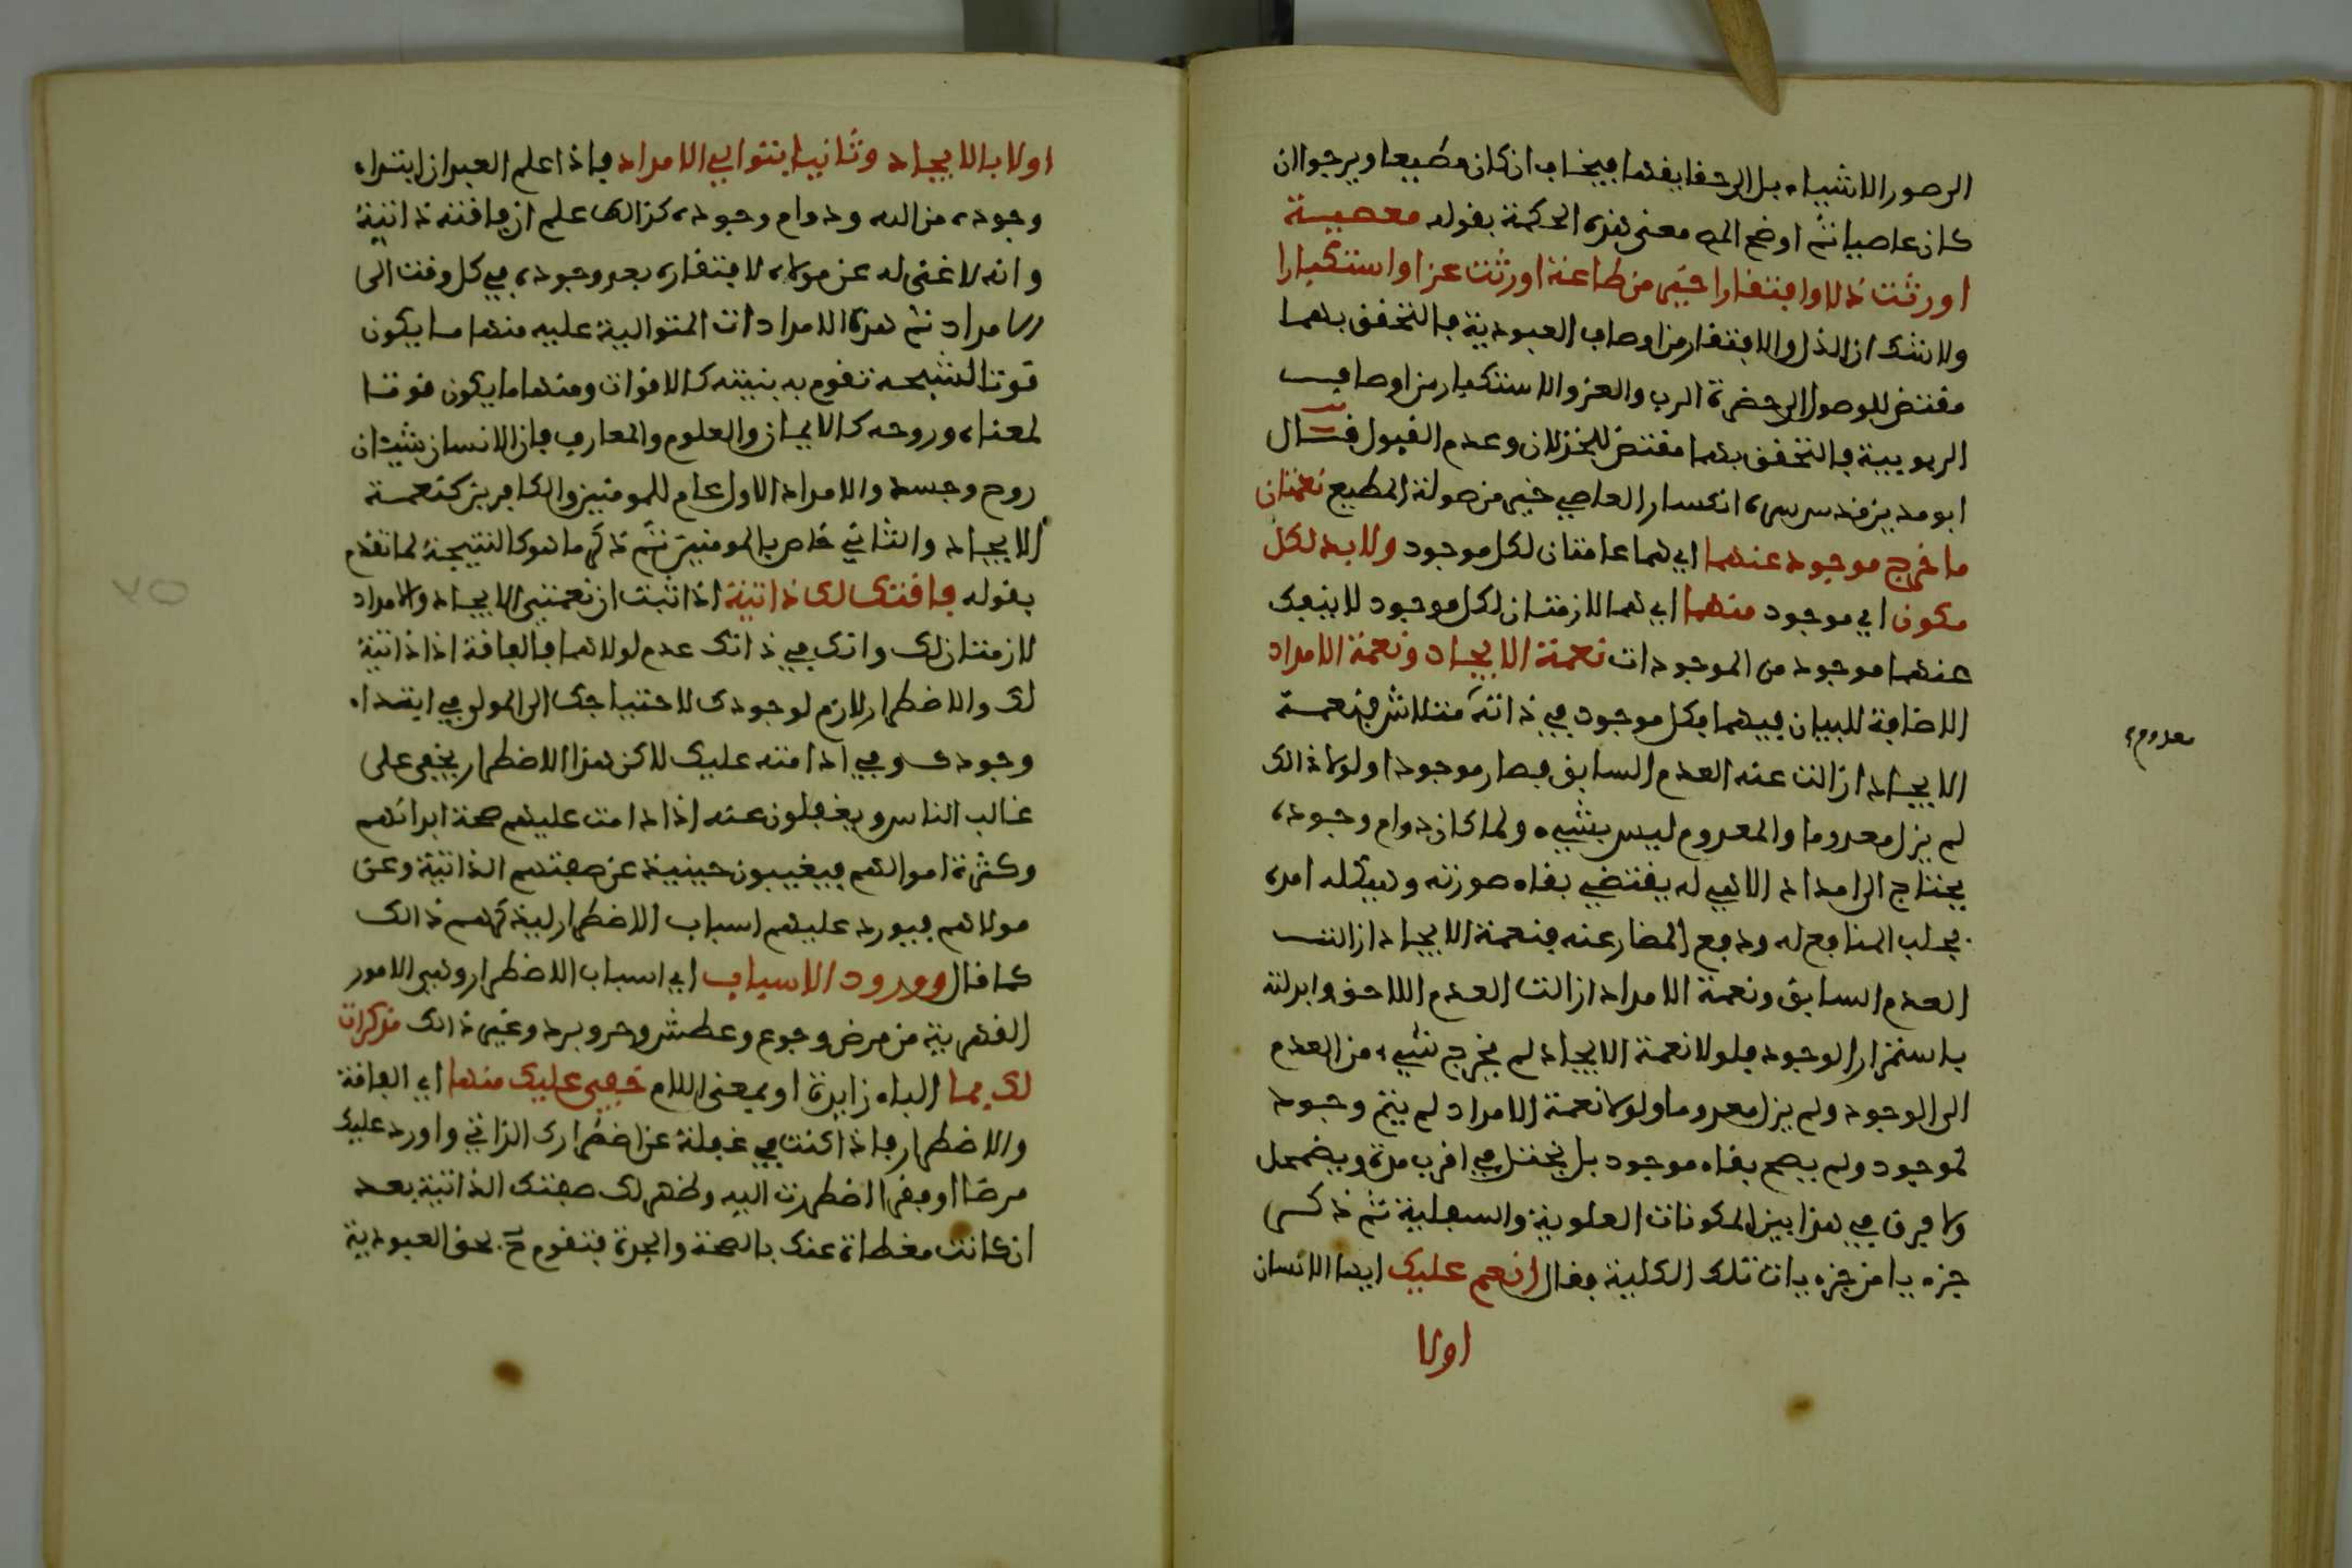 الى صور الاشياء بل الى حقايقها فيخاف ان كان مطيعا ويرجوا ان
كان عاصيا ثم اوضح المص معنى هذه الحكمة بقوله معصيـة
اورثت ذلا وافتقارا خير من طاعة اورثت عزا واستكبارا
ولا شك ان الذل والافتقار من اوصاف العبودية فالتحقق بهما
مقتض للوصول الى حضرة الرب والعز والاستكبار من اوصاف
الربوبية فالتحقق بهما مقتض للخذلان وعدم القبول قال
ابو مدين قدس سره انكسار العاصي خير من صولة المطيع نعمتان
ما خرج موجود عنهما اي هما عامتان لكل موجود ولا بد لكل
مكون اي موجود منهما اي هما لازمتان لكل موجود لا ينفك
عنهما موجود من الموجودات نعمة الايجاد ونعمة الامداد
الاضافة للبيان فيهما فكل موجود في ذاته متلاش فنعمة
معدوم
الايجاد ازالت عنه العدم السابق فصار موجودا ولولا ذالك
لم يزل معدوما والمعدوم ليس بشيء ولما كان دوام وجوده
يحتاج الى امداد الاهي له يقتضي بقاء صورته وهيكله امده
بجلب المنافع له ودفع المضار عنه فنعمة الايجاد ازالت
العدم السابق ونعمة الامداد ازالت العدم اللاحق وابدلته
باستمرار الوجود فلولا نعمة الايجاد لم يخرج شيء من العدم
الى الوجود ولم يزل معدوما ولولا نعمة الامداد لم يتم وجود
لموجود ولم يصح بقاء موجود بل يختل في اقرب مدة ويضمحل
ولا فرق في هذا بين المكونات العلوية والسفلية ثم ذكر
جزءيا من جزءيات تلك الكلية فقال انعم عليك ايها الانسان
اولا
اولا بالايجاد وثانيا بتوالي الامداد فاذا علم العبد ان ابتداء
وجوده من الله ودوام وجوده كذالك علم ان فاقته ذاتية
وانه لا غنى له عن مولاه لافتقاره بعد وجوده في كل وقت الى
الامداد ثم هذه الامدادات المتوالية عليه منها ما يكون
قوتا لشبحه تقوم به بنيته كالاقوات ومنها ما يكون قوتا
لمعناه وروحه كالايمان والعلوم والمعارف فان الانسان شيئان
روح وجسد والامداد الاول عام للمومنين والكافرين كنعمة
الايجاد والثاني خاص بالمومنين ثم ذكر ما هو كالنتيجة لما تقدم
بقوله فاقتك لك ذاتية اذا ثبت ان نعمتي الايجاد والامداد
لازمتان لك وانك في ذاتك عدم لولاهما فالفاقة اذا ذاتية
لك والاضطرار لازم لوجودك لاحتياجك الى المولى في ابتداء
وجودك وفي ادامته عليك لاكن هذا الاضطرار يخفى على
غالب الناس ويغفلون عنه اذا دامت عليهم صحة ابدانهم
وكثرة اموالهم فيغيبون حينيذ عن صفتهم الذاتية وعن
مولاهم فيورد عليهم اسباب الاضطرار ليذكرهم ذالك
كما قال وورود الاسباب اي اسباب الاضطرار وهي الامور
القهرية من مرض وجوع وعطش وحر وبرد وغير ذالك مذكرات
لك بما الباء زايدة او بمعنى اللام خفي عليك منها اي الفاقة
والاضطرار فاذا كنت في غفلة عن اضطرارك الذاتي واورد عليك
مرضا او فقرا اضطررت اليه وظهر لك صفتك الذاتية بعد
ان كانت مغطاة عنك بالصحة والجدة فتقوم ح بحق العبودية